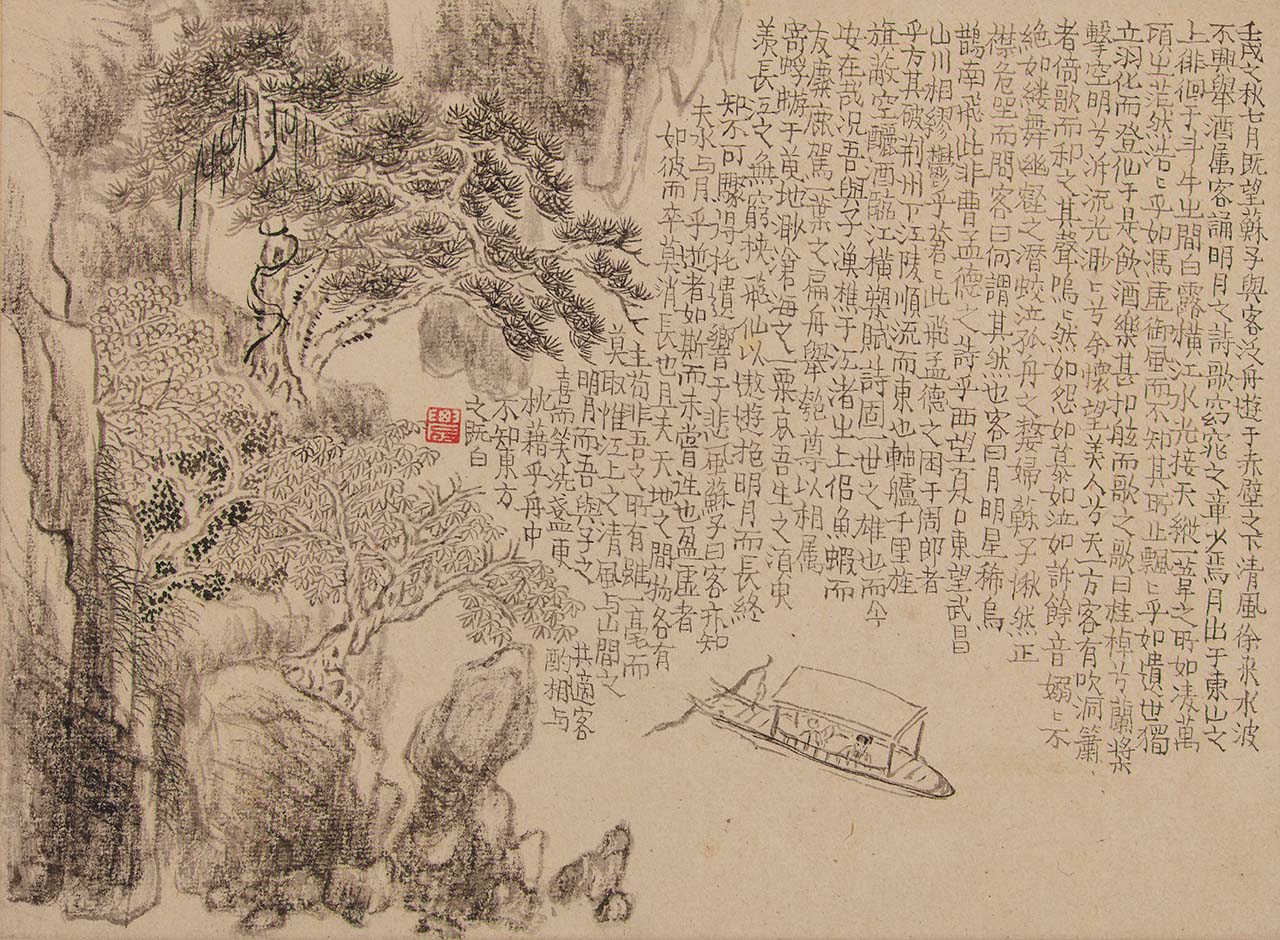 壬戌之秋七月既望蘇子與客泛舟遊于赤壁之下清風徐來水波
不興舉酒属客誦明月之詩歌窈窕之章少焉月出于東山之
上徘徊于斗牛之間白露橫江水光接天縱一葦之所如凌萬
頃之茫然浩〻乎如馮虛御風而不知其所止飄〻乎如遺世獨
立羽化而登仙于是飲酒樂甚扣舷而歌之歌曰桂棹兮蘭槳
擊空明兮泝流光渺〻兮余懷望美人兮天一方客有吹洞簫
者倚歌而和之其聲嗚〻然如怨如慕如泣如訴餘音嫋〻不
絕如縷舞幽壑之潛蛟泣孤舟之嫠婦蘇子愀然正
襟危坐而問客曰何謂其然也客曰月明星稀烏
鵲南飛此非曹孟德之詩乎西望夏口東望武昌
山川相繆鬱乎蒼〻此飛孟德之困于周郎者
乎方其破荆州下江陵順流而東也舳艫千里旌
旗蔽空釃酒臨江橫槊賦詩固一世之雄也而今
安在哉況吾與子漁樵于江渚之上侣魚蝦而
友麋鹿駕一葉之扁舟舉匏尊以相属
寄蜉蝣于地渺滄海之一粟哀吾生之須臾
羨長江之無窮挾飛仙以遨遊抱明月而長終
知不可驟得托遺響于悲風蘇子曰客亦知
夫水与月乎逝者如斯而未嘗往也盈虛者
如彼而卒莫消長也月夫天天地之間物各有
主茍非吾之所有雖一毫而
莫取惟江上之清風与山間之
明月而吾與子之共適客
喜而笑洗盞更酌相与
枕藉乎舟中
不知東方
之既白